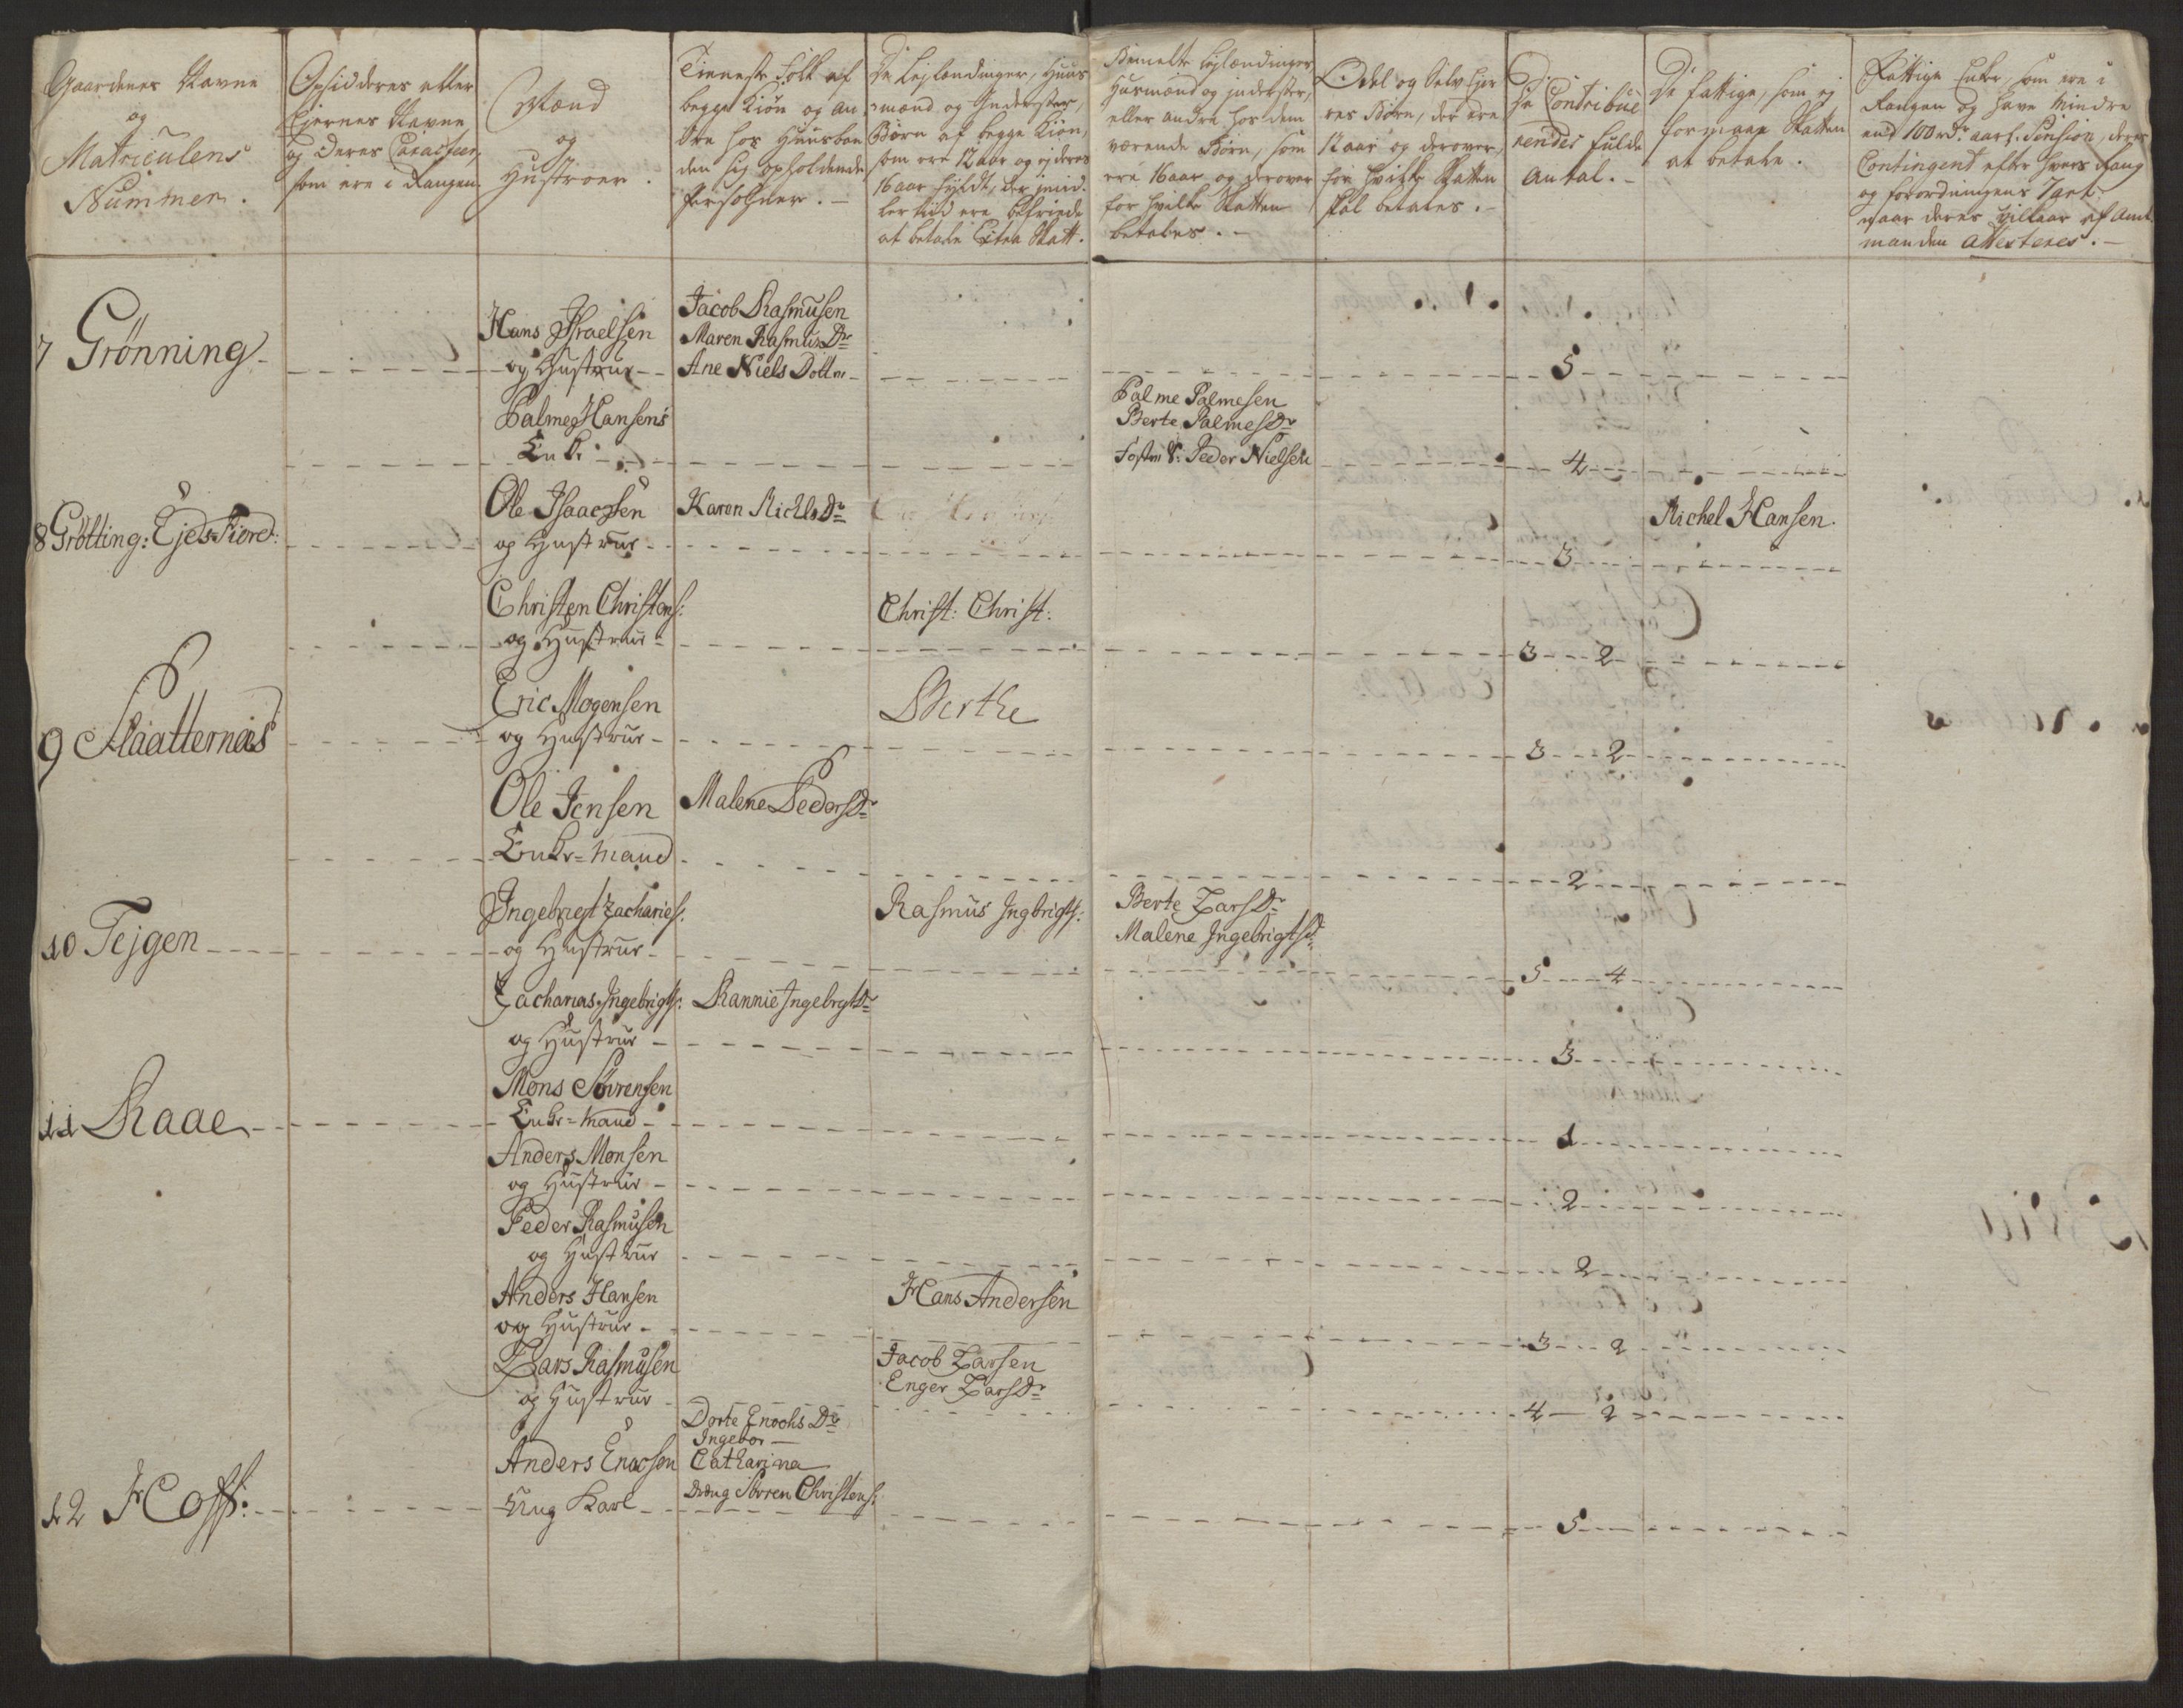 Gaardenes Navne
og
Matriculens
Nummer.
Opsidderes eller
Ejernes Navne
og deres Caracteer,
som ere i Rangen.
Mænd
og
Hustroer.
Tieneste Folk af
begge Kiøn og an-
dre hos Huusbon
den sig opholdende
Personer.
De Lejlændinger, Huus
mænd og Inderster,
Børn af begge Kiøn,
som ere 12 aar og ej deres
16 aar fyldt, der imid-
lertiid ere befriede
at betale Extra Skatt.
Bemelte Lejlændinger
Husmænd og inderster,
eller andre hos dem
værende Børn, som
ere 16 aar og derover
for hvilke Skatten
betales.
Odel og Selv Ejer
res Børn, der ere
12 aar og derover,
for hvilke Skatten
skal betales.
De Contribue
rendes fulde
Antal.
De fattige, som ej
formaar Skatten
at betale.
Fattige Enker, som ere i
Rangen og have mindre
end 100 rdr aarl. Pension, deres
Contingent efter hvers Rang
og forordningens
naar deres vilkaar af Amt
manden Attesteres.
7 Grønning
Hans Israelsen
og Hustrue
Jacob Rasmusen
Maren Rasmus Dr
Ane Niels Dotter
5
Palme Hansens
Enke
Palme Palmesen
Berte Palmes Dr
Foster S: Peder Nielsen
4
8 Grøtting: Ejdsfiord:
Ole Isaacsen
og Hustrue
Karen Michls Dr
3
Michel Hansen.
Christen Christens:
og Hustrue
Christ: Christ:
3 2
9 Slaatternæs
Eric Mogensen
og Hustrue
Berthe
3 2
Ole Jensen
Enke-Mand
Malene Peders Dr
2
10 Tejgen
Ingebrigt Zacharies:
og Hustrue
Rasmus Ingbrigts:
Berte Lars Dr
Malene Ingebrigts Dr
5 4
Zacharias Ingebrigts:
og Hustrue
Rannie Ingebrgts Dr
3
11 Raae
Mons Sørrensen
Enke-Mand
1
Anders Monsen
og Hustrue
2
Peder Rasmusen
og Hustrue
2
Anders Hansen
og Hustrue
Hans Andersen
3 2
Lars Rasmusen
og Hustrue
Jacob Larsen
Enger Lars Dr
4 2
12 Hoff:
Anders Enocsen
Ung Karl
Dorte Enochs Dr
Ingebor
Catharina
Dreng Sørren Christens:
5